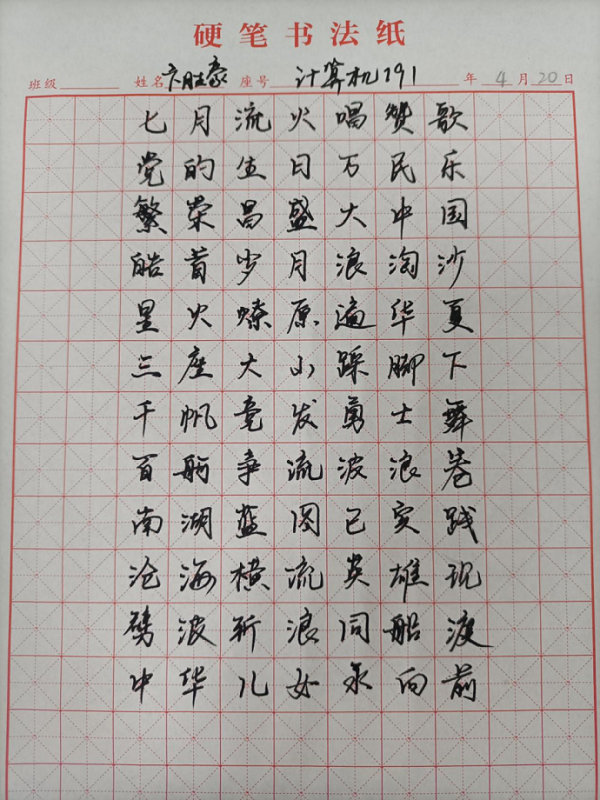 硬笔书法纸
班级 姓名 卞胜豪 座号 计算机191 年 4 月 20 日
七月流火唱赞歌
党的生日万民乐
繁荣昌盛大中国
皓首岁月浪淘沙
星火燎原遍华夏
三座大山踩脚下
千帆竞发勇士舞
百舸争流波浪卷
南湖蓝图已实践
沧海横流英雄现
劈波斩浪同船渡
中华儿女永向前